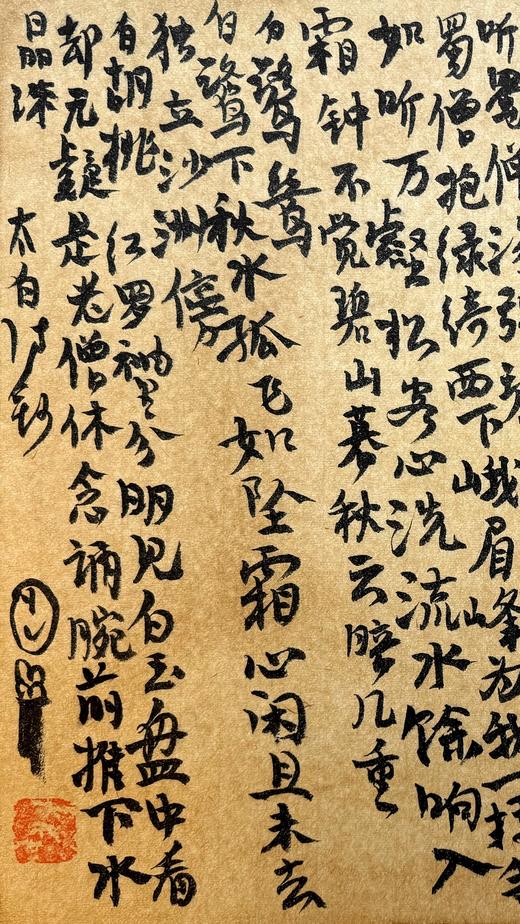 听蜀僧浚弹琴
蜀僧抱绿绮西下峨眉峰为我一挥手
如听万壑松客心洗流水馀响入
霜钟不觉碧山暮秋云暗几重
白鹭鸶
白鹭下秋水孤飞如坠霜心闲且未去
独立沙洲傍
白胡桃
红罗袖里分明见白玉盘中看
却无疑是老僧休念诵腕前推下水
晶珠
太白诗钞